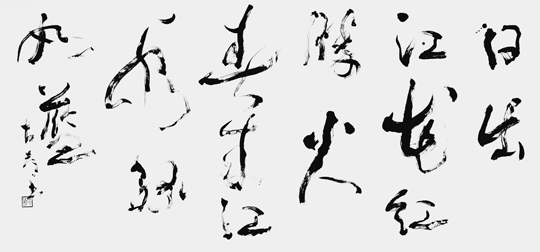 日出
江花红
胜火
春来江
水绿
如蓝